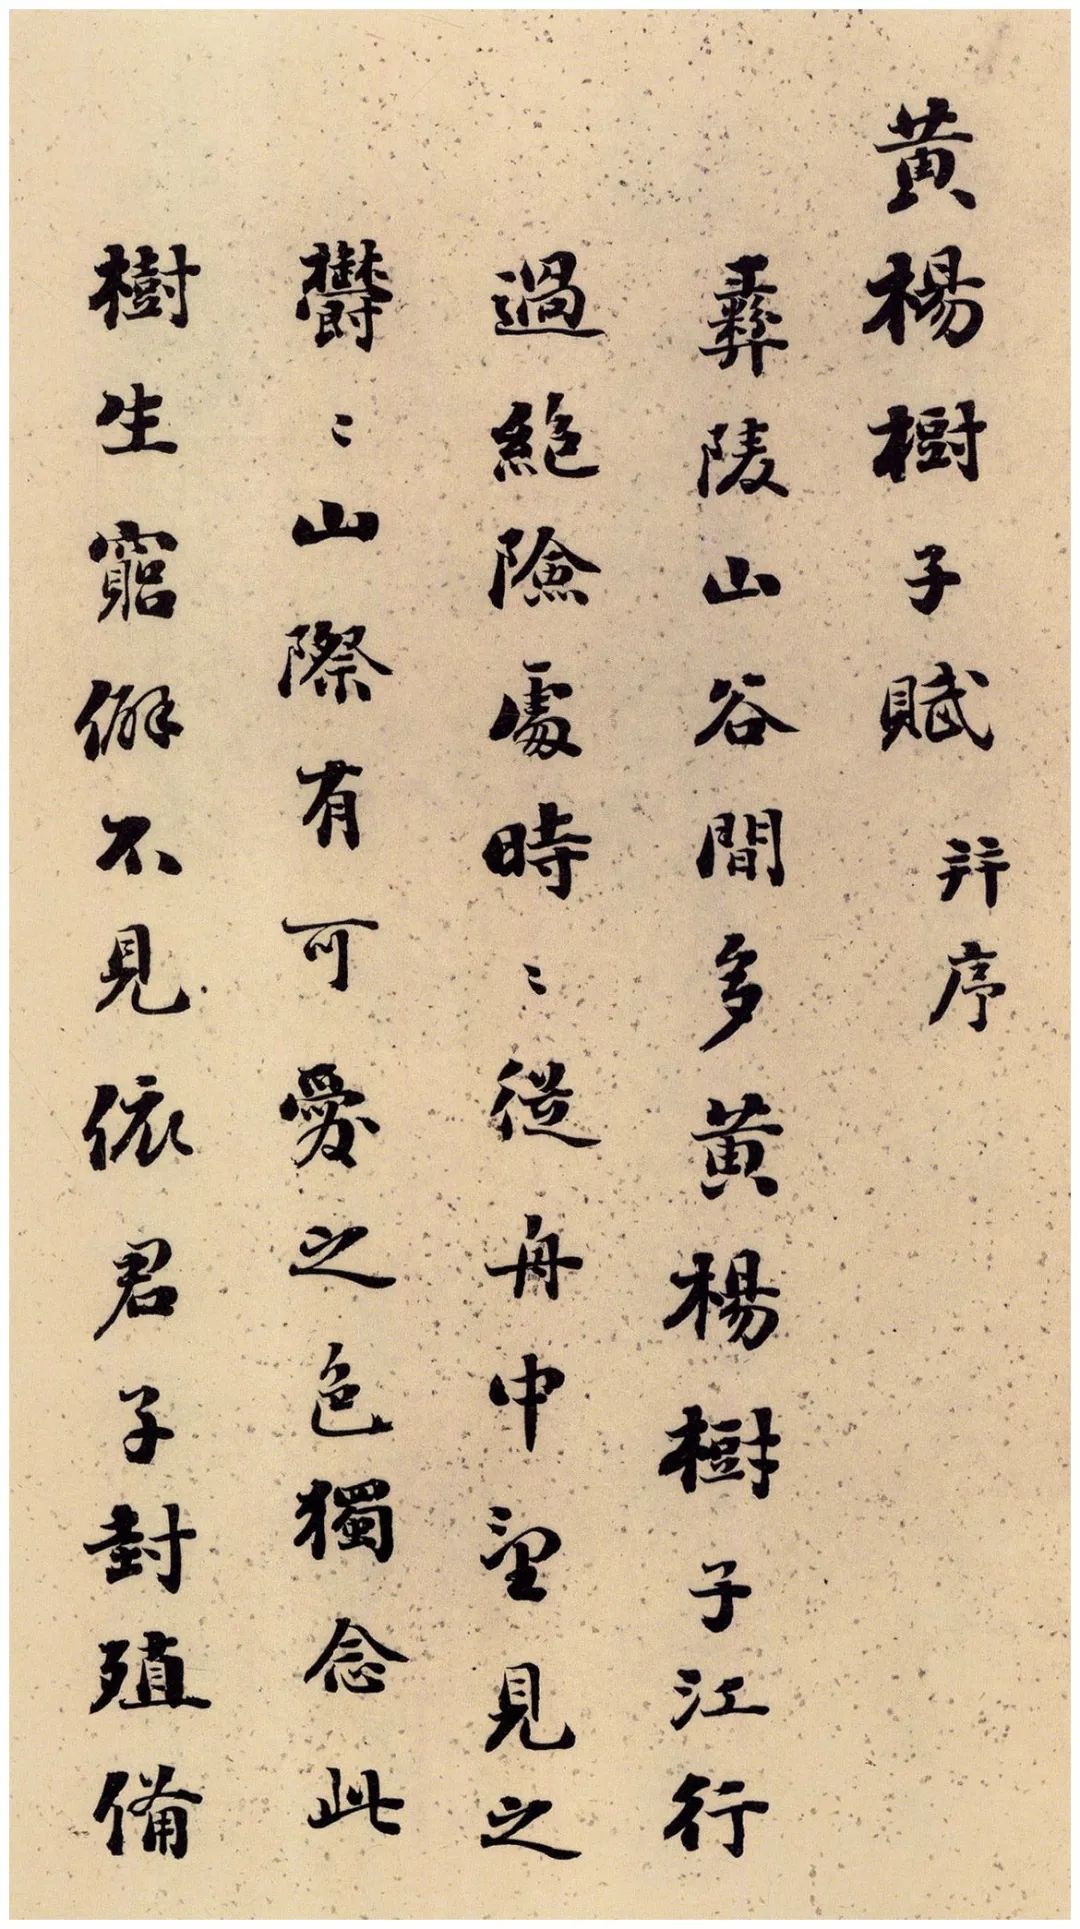 黄楊樹子賦 并序
彝陵山谷間多黄楊樹子江行
過絶險處時〻從舟中望見之
欝〻山際有可愛之色獨念此
樹生窮僻不見依君子封殖備